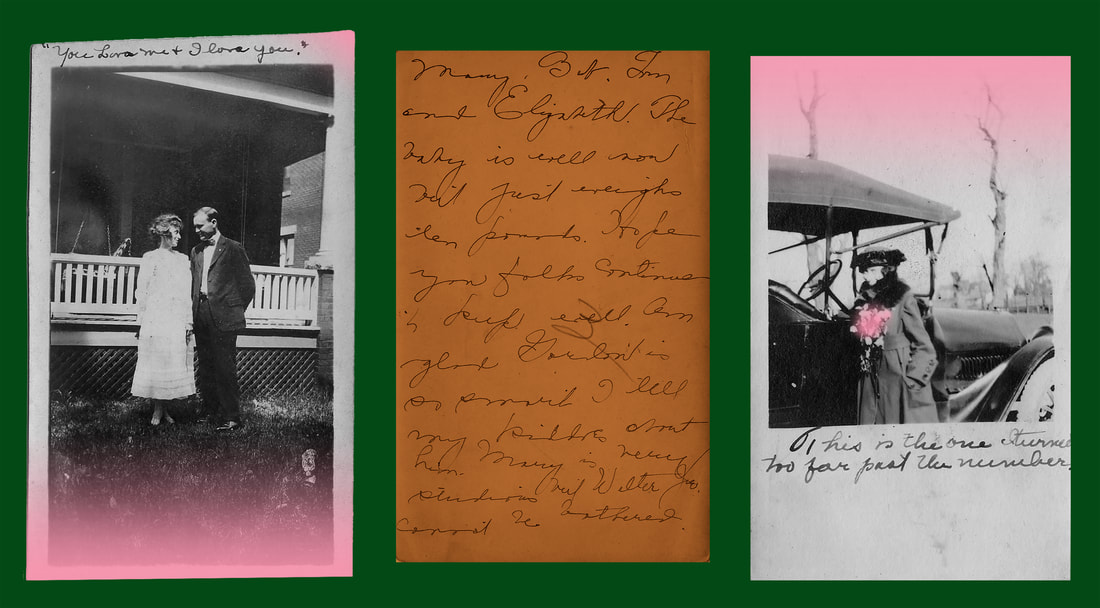 "You Love me & I love you."
Mary, Bet, Tom
and Elizabeth. The
baby is well now
but just weighs
ten pounds. Hope
you folks continue
to keep well. Am
glad Gordon is
so smart I tell
my kiddies about
him. Mary is very
studious but Walter Jr.
cannot be bothered.
This is the one I turned
too far past the number.